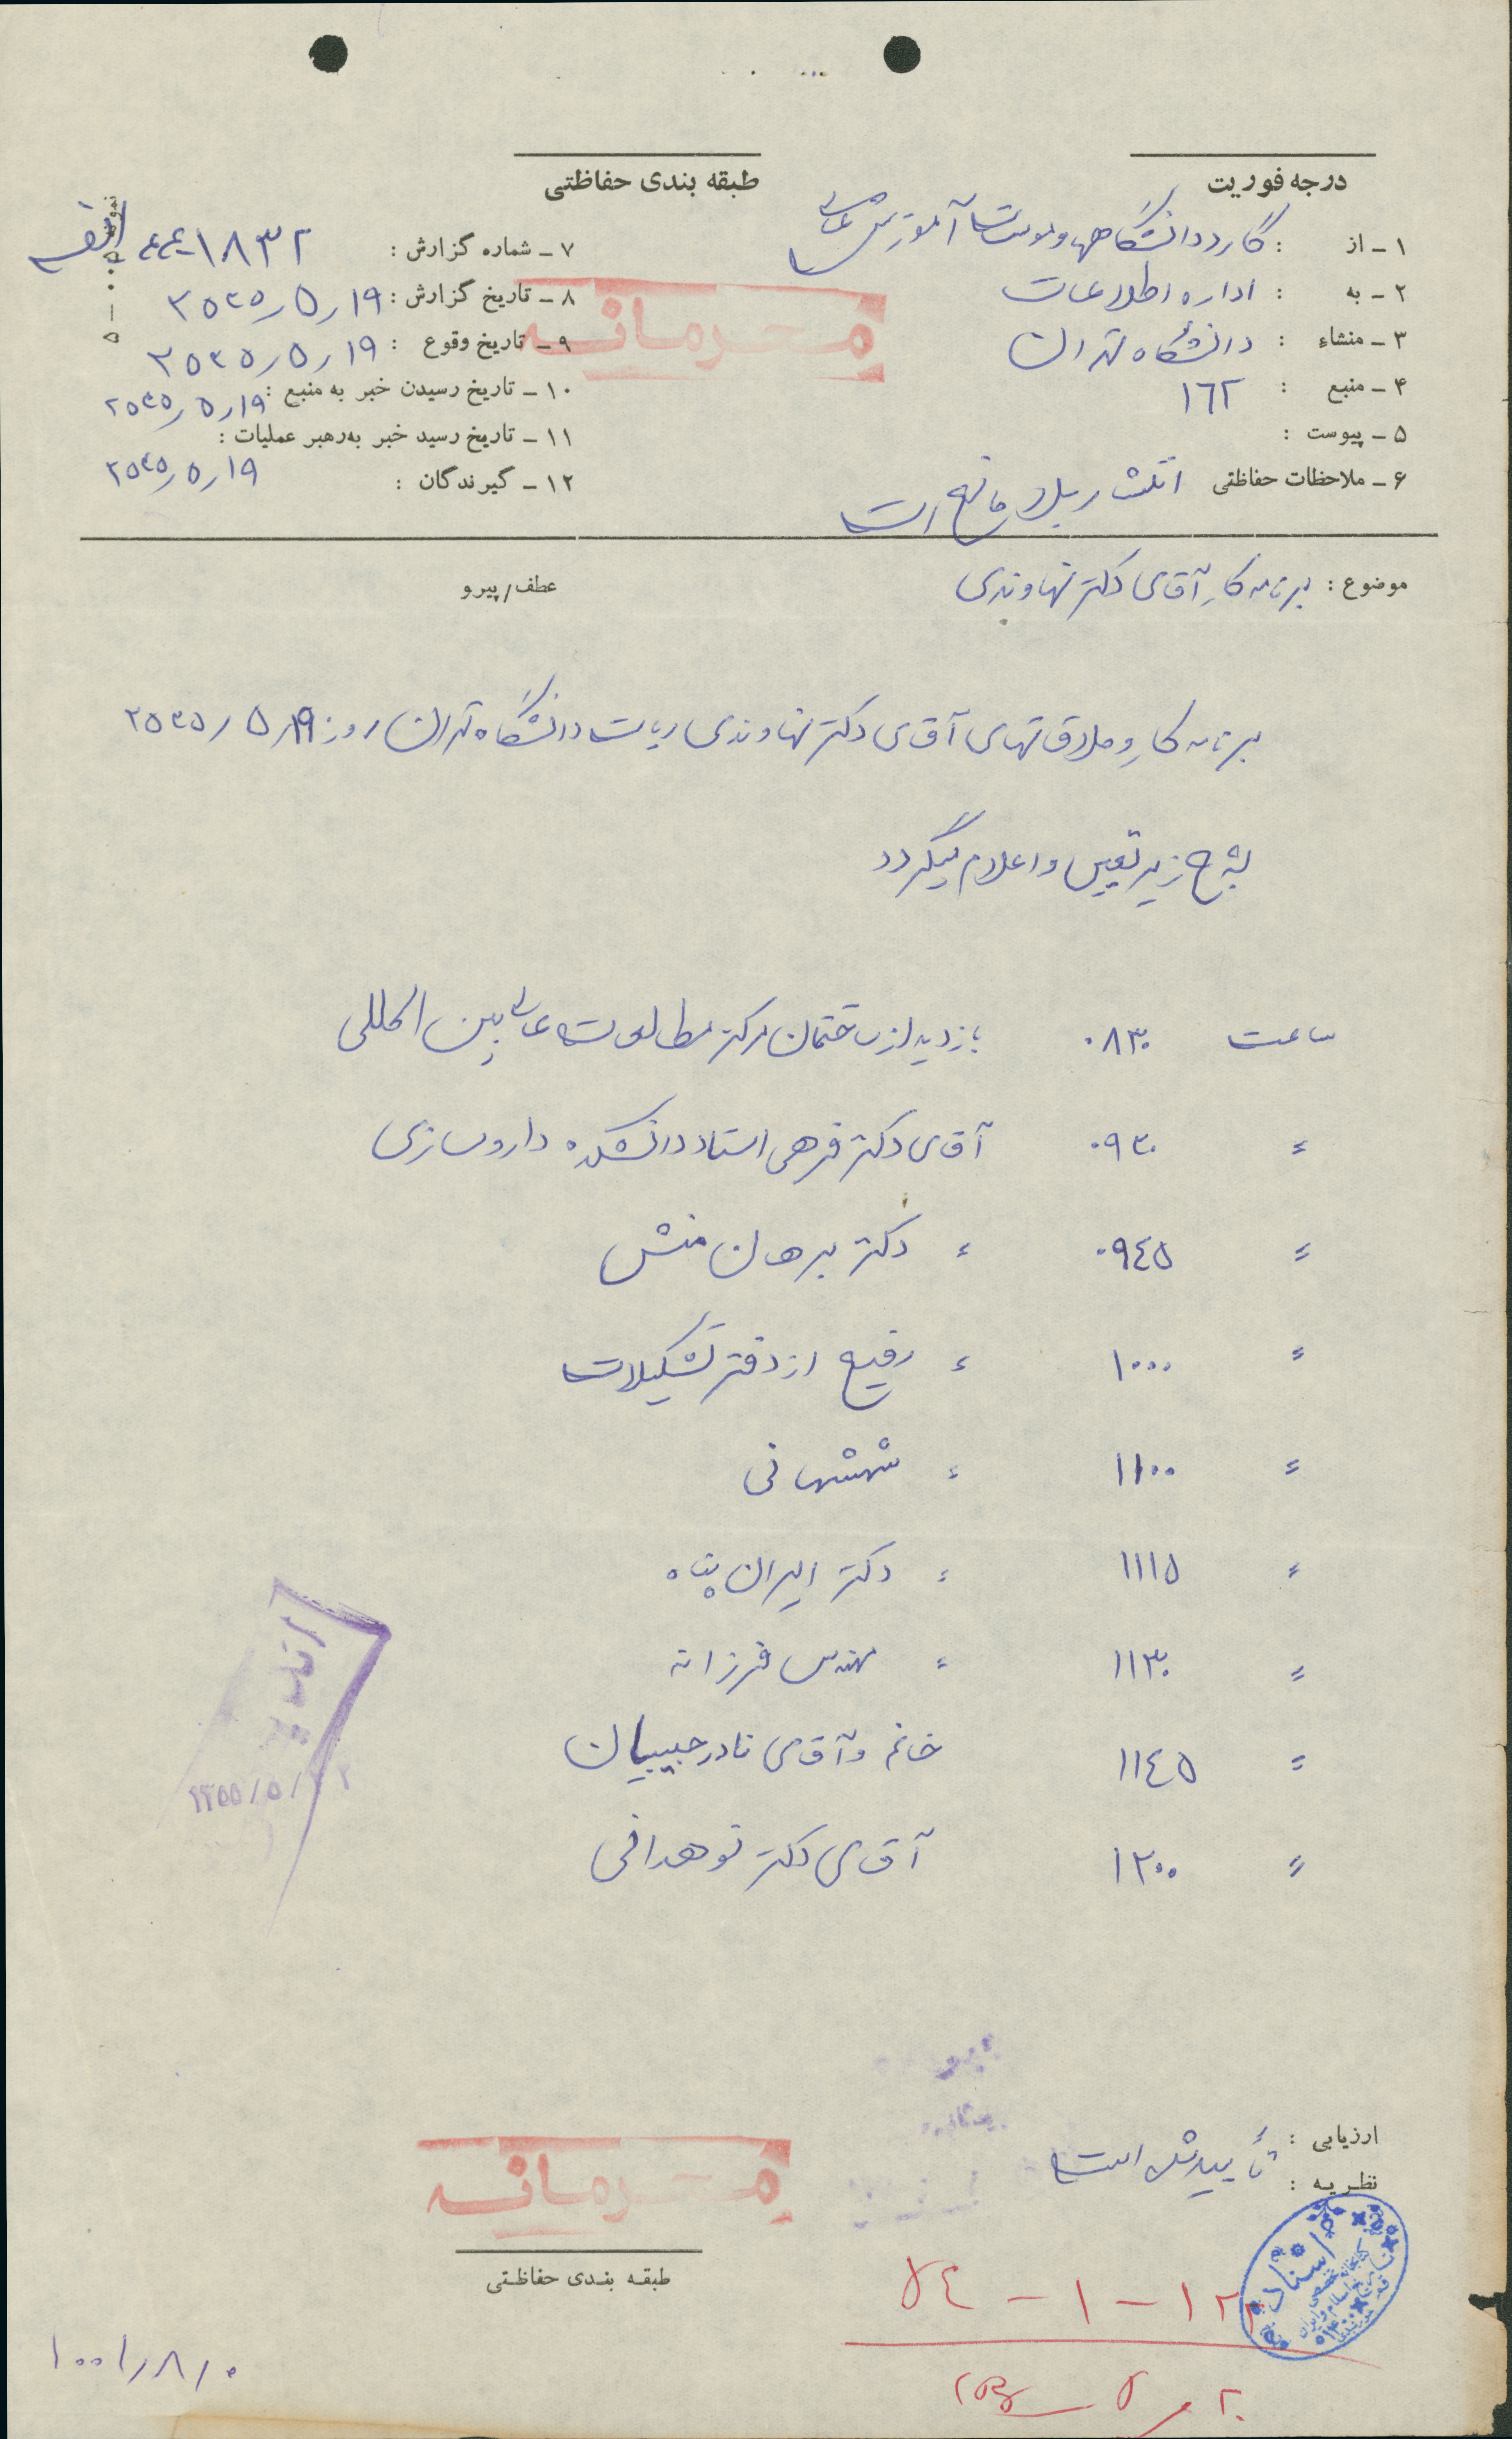 درجه فوریت
طبقه بندی حفاظتی
۱ - از : گارد دانشگاهها و موسسات آموزش عالی
۲ - به : اداره اطلاعات
۳ - منشاء : دانشگاه تهران
۴ - منبع : ۱۶۲
۵ - پیوست :
۶ - ملاحظات حفاظتی انتشار بلامانع است
۷ - شماره گزارش : ۱۸۳۲-۴۴ الف
۸ - تاریخ گزارش : ۲۵۳۵/۵/۱۹
۹ - تاریخ وقوع : ۲۵۳۵/۵/۱۹
۱۰ - تاریخ رسیدن خبر به منبع : ۲۵۳۵/۵/۱۹
۱۱ - تاریخ رسید خبر به رهبر عملیات :
۲۵۳۵/۵/۱۹
۱۲ - گیرندگان :
محرمانه
موضوع : برنامه کار آقای دکتر نهاوندی
عطف/پیرو
برنامه کار و ملاقاتهای آقای دکتر نهاوندی ریاست دانشگاه تهران روز ۲۵۳۵/۵/۱۹
بشرح زیر تعیین و اعلام میگردد
ساعت ۰۸۳۰ بازدید از ساختمان مرکز مطالعات عالی بین المللی
〃 ۰۹۳۰ آقای دکتر فرهی استاد دانشکده داروسازی
〃 ۰۹۴۵ 〃 دکتر برهان منش
〃 ۱۰۰۰ 〃 رفیع از دفتر تشکیلات
〃 ۱۱۰۰ 〃 ششهانی
〃 ۱۱۱۵ 〃 دکتر ایران پناه
〃 ۱۱۳۰ 〃 مهندس فرزانه
〃 ۱۱۴۵ خانم و آقای نادر حبیبیان
〃 ۱۲۰۰ آقای دکتر نوهدانی
۱۳۵۵/۵/
ارزیابی : تأیید شده است
نظریه :
محرمانه
طبقه بندی حفاظتی
اسناد
۱۰۰۱/۸/۰